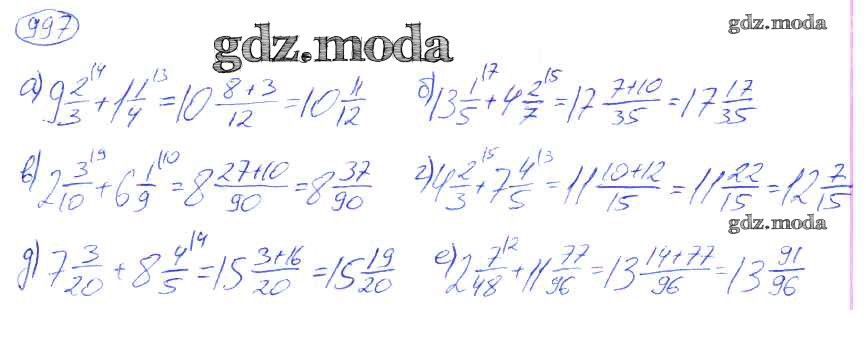 997
gdz.moda
gdz.moda
а) 9 2/3 |4 + 1 1/4 |3 = 10 (8+3)/12 = 10 11/12
б) 13 1/5 |7 + 4 2/7 |5 = 17 (7+10)/35 = 17 17/35
в) 2 3/10 |9 + 6 1/9 |10 = 8 (27+10)/90 = 8 37/90
г) 4 2/3 |5 + 7 4/5 |3 = 11 (10+12)/15 = 11 22/15 = 12 7/15
gdz.moda
д) 7 3/20 + 8 4/5 |4 = 15 (3+16)/20 = 15 19/20
е) 2 7/48 |2 + 11 77/96 = 13 (14+77)/96 = 13 91/96
gdz.moda